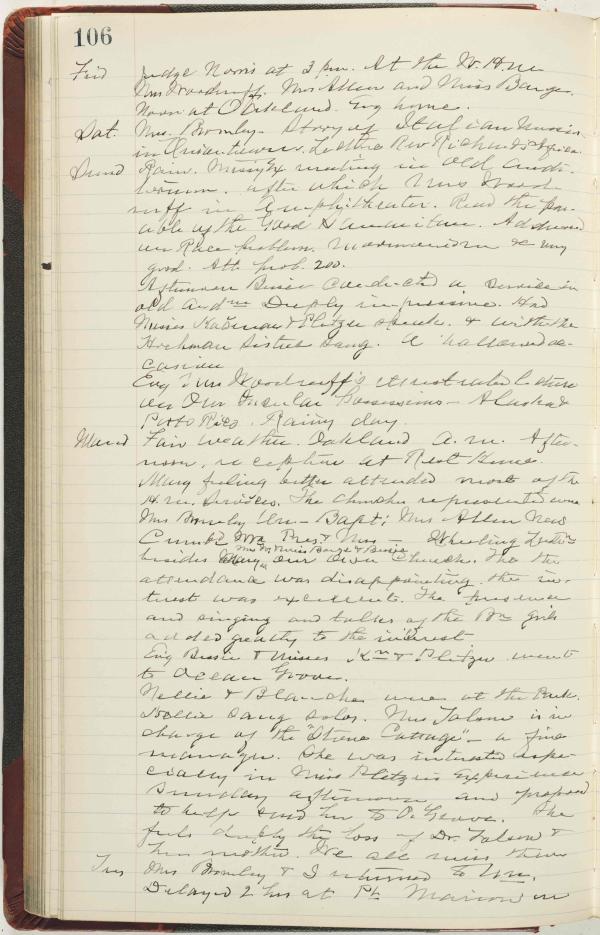 106
Frid Judge Norris at 3 p.m. At the
Mrs Woodruff, Mrs Allen and Miss Barge.
Noon at Oakland. Evg home.
Sat. Mrs. Bromley. Story of Italian
in Lecture Rev
Sund Rain. Miss'y meeting in old audi-
torium. after which Mrs Wood-
ruff in Amphitheater. Read the par-
able of the Good Samaritan. Address
on Race problem. Mormonism & very
good. Att. prob. 200.
Afternoon Bessie conducted a service in
old Deeply impressive. Had
Misses & Plitzer speak. & with the
Hockman Sisters sang. A hallowed oc-
casion
Evg Mrs Woodruff's illustrated lecture
on Our Insular Possessions - Alaska &
Porto Rico. Rainy day.
Fair weather. Oakland a.m. After-
noon, reception at Rest Home.
Mary feeling better attended most of the
H.m. services. The churches represented were
Mrs Bromley - Bapt; Mrs Allen New
Pres. & Mrs -
Mrs Miss Barge & Bessie
besides our own Church. Tho the
attendance was disappointing, the in-
terest was excellent. The presence
and singing and talks of the girls
added greatly to the interest
Evg Bessie & Misses & Plitzer went
to Ocean Grove.
Nellie & Blanche were at the Park.
Nellie sang solos. Mrs is in
charge of the "Stone Cottage" - a fine
manager. She was interested espe-
cially in Miss Plitzer's experience
Sunday afternoon and proposed
to help send her to O. Grove. She
feels deeply the loss of Dr. &
her mother. We all miss them
Tues Mrs Bromley & I returned to
Delayed 2 hrs at Pt. Marion in